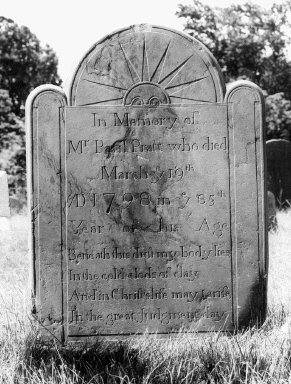 In Memory of
Mr Paul Pratt who died
March ye 19th
AD 1798 in ye 85th
Year of his Age
Beneath this dust my body lies
In the cold clods of clay
And in Christs life may I arise
In the great Judgment day